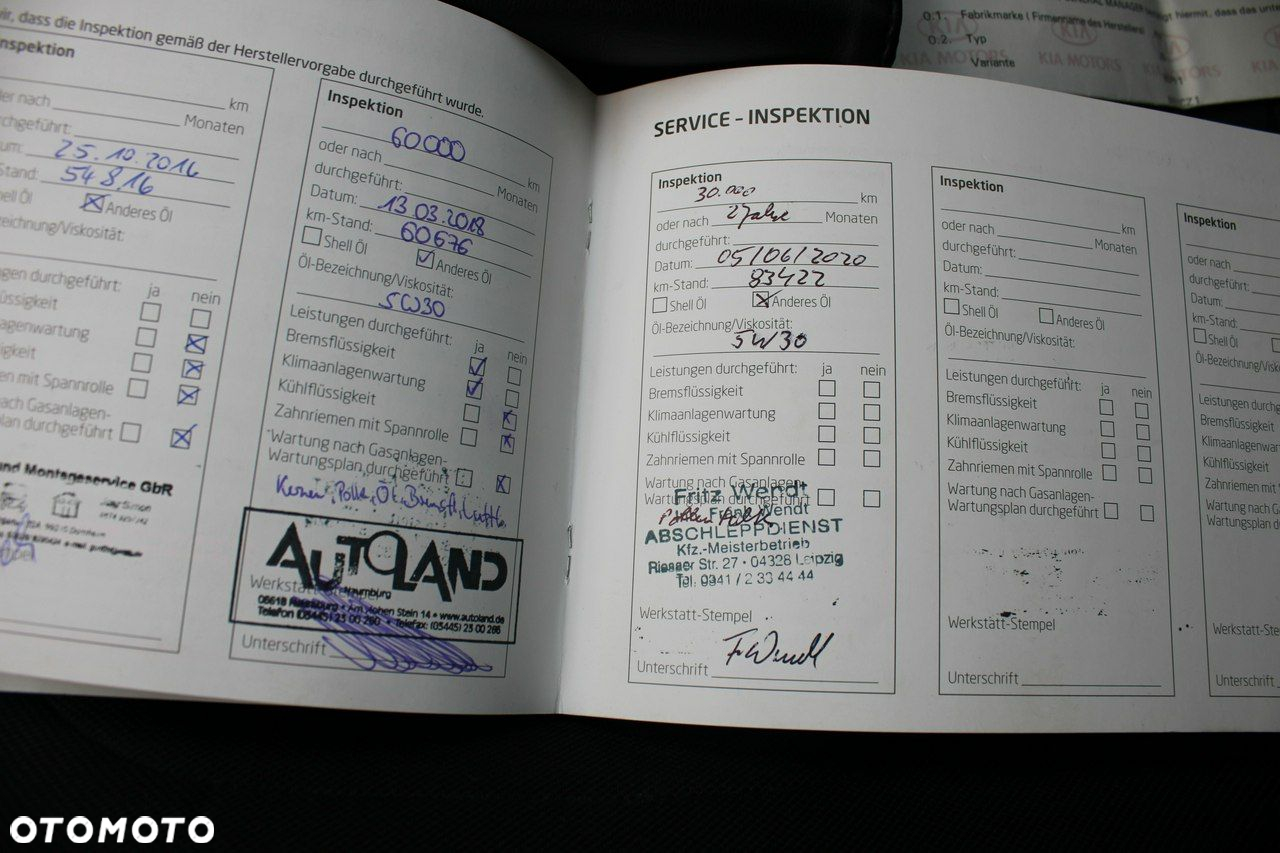 wir, dass die Inspektion gemäß der Herstellervorgabe durchgeführt wurde.
Inspektion
km
oder nach Monaten
durchgeführt:
Datum: 25.10.2016
Stand: 54816
Shell Öl Anderes Öl
Bezeichnung/Viskosität:
ungen durchgeführt: ja nein
flüssigkeit
lagenwartung
igkeit
en mit Spannrolle
nach Gasanlagen-
plan durchgeführt
und Montageservice GbR
Inspektion
60000 km
oder nach Monaten
durchgeführt:
Datum: 13.03.2018
km-Stand: 60676
Shell Öl Anderes Öl
Öl-Bezeichnung/Viskosität:
5W30
Leistungen durchgeführt: ja nein
Bremsflüssigkeit
Klimaanlagenwartung
Kühlflüssigkeit
Zahnriemen mit Spannrolle
Wartung nach Gasanlagen-
Wartungsplan durchgeführt
AUTOLAND
Werkstatt-Stempel
Naumburg
06618 Naumburg • Am Hohen Stein 14 • www.autoland.de
Telefon (03445) 23 00 260 • Telefax: (03445) 23 00 266
Unterschrift
SERVICE – INSPEKTION
Inspektion
30.000 km
oder nach 2 Jahre Monaten
durchgeführt:
Datum: 05/06/2020
km-Stand: 83422
Shell Öl Anderes Öl
Öl-Bezeichnung/Viskosität:
5W30
Leistungen durchgeführt: ja nein
Bremsflüssigkeit
Klimaanlagenwartung
Kühlflüssigkeit
Zahnriemen mit Spannrolle
Wartung nach Gasanlagen-
Wartungsplan durchgeführt
Fritz Wendt
Frank Wendt
ABSCHLEPPDIENST
Kfz.-Meisterbetrieb
Riesaer Str. 27 • 04328 Leipzig
Tel. 0341 / 2 33 44 44
Werkstatt-Stempel
Unterschrift F. Wendt
Inspektion
km
oder nach Monaten
durchgeführt:
Datum:
km-Stand:
Shell Öl Anderes Öl
Öl-Bezeichnung/Viskosität:
Leistungen durchgeführt: ja nein
Bremsflüssigkeit
Klimaanlagenwartung
Kühlflüssigkeit
Zahnriemen mit Spannrolle
Wartung nach Gasanlagen-
Wartungsplan durchgeführt
Werkstatt-Stempel
Unterschrift
Inspektion
oder nach
durchgeführt:
Datum:
km-Stand:
Shell Öl
Öl-Bezeichnung/Visk
Leistungen durchg
Bremsflüssigkeit
Klimaanlagenwart
Kühlflüssigkeit
Zahnriemen mit S
Wartung nach Ga
Wartungsplan dur
Werkstatt-Stem
Unterschrift
GENERAL MANAGER hiermit, dass das unte
0.1. Fabrikmarke ( Firmenname des Herstellers)
0.2. Typ
Variante
KIA MOTORS
KIA MOTORS
OTOMOTO